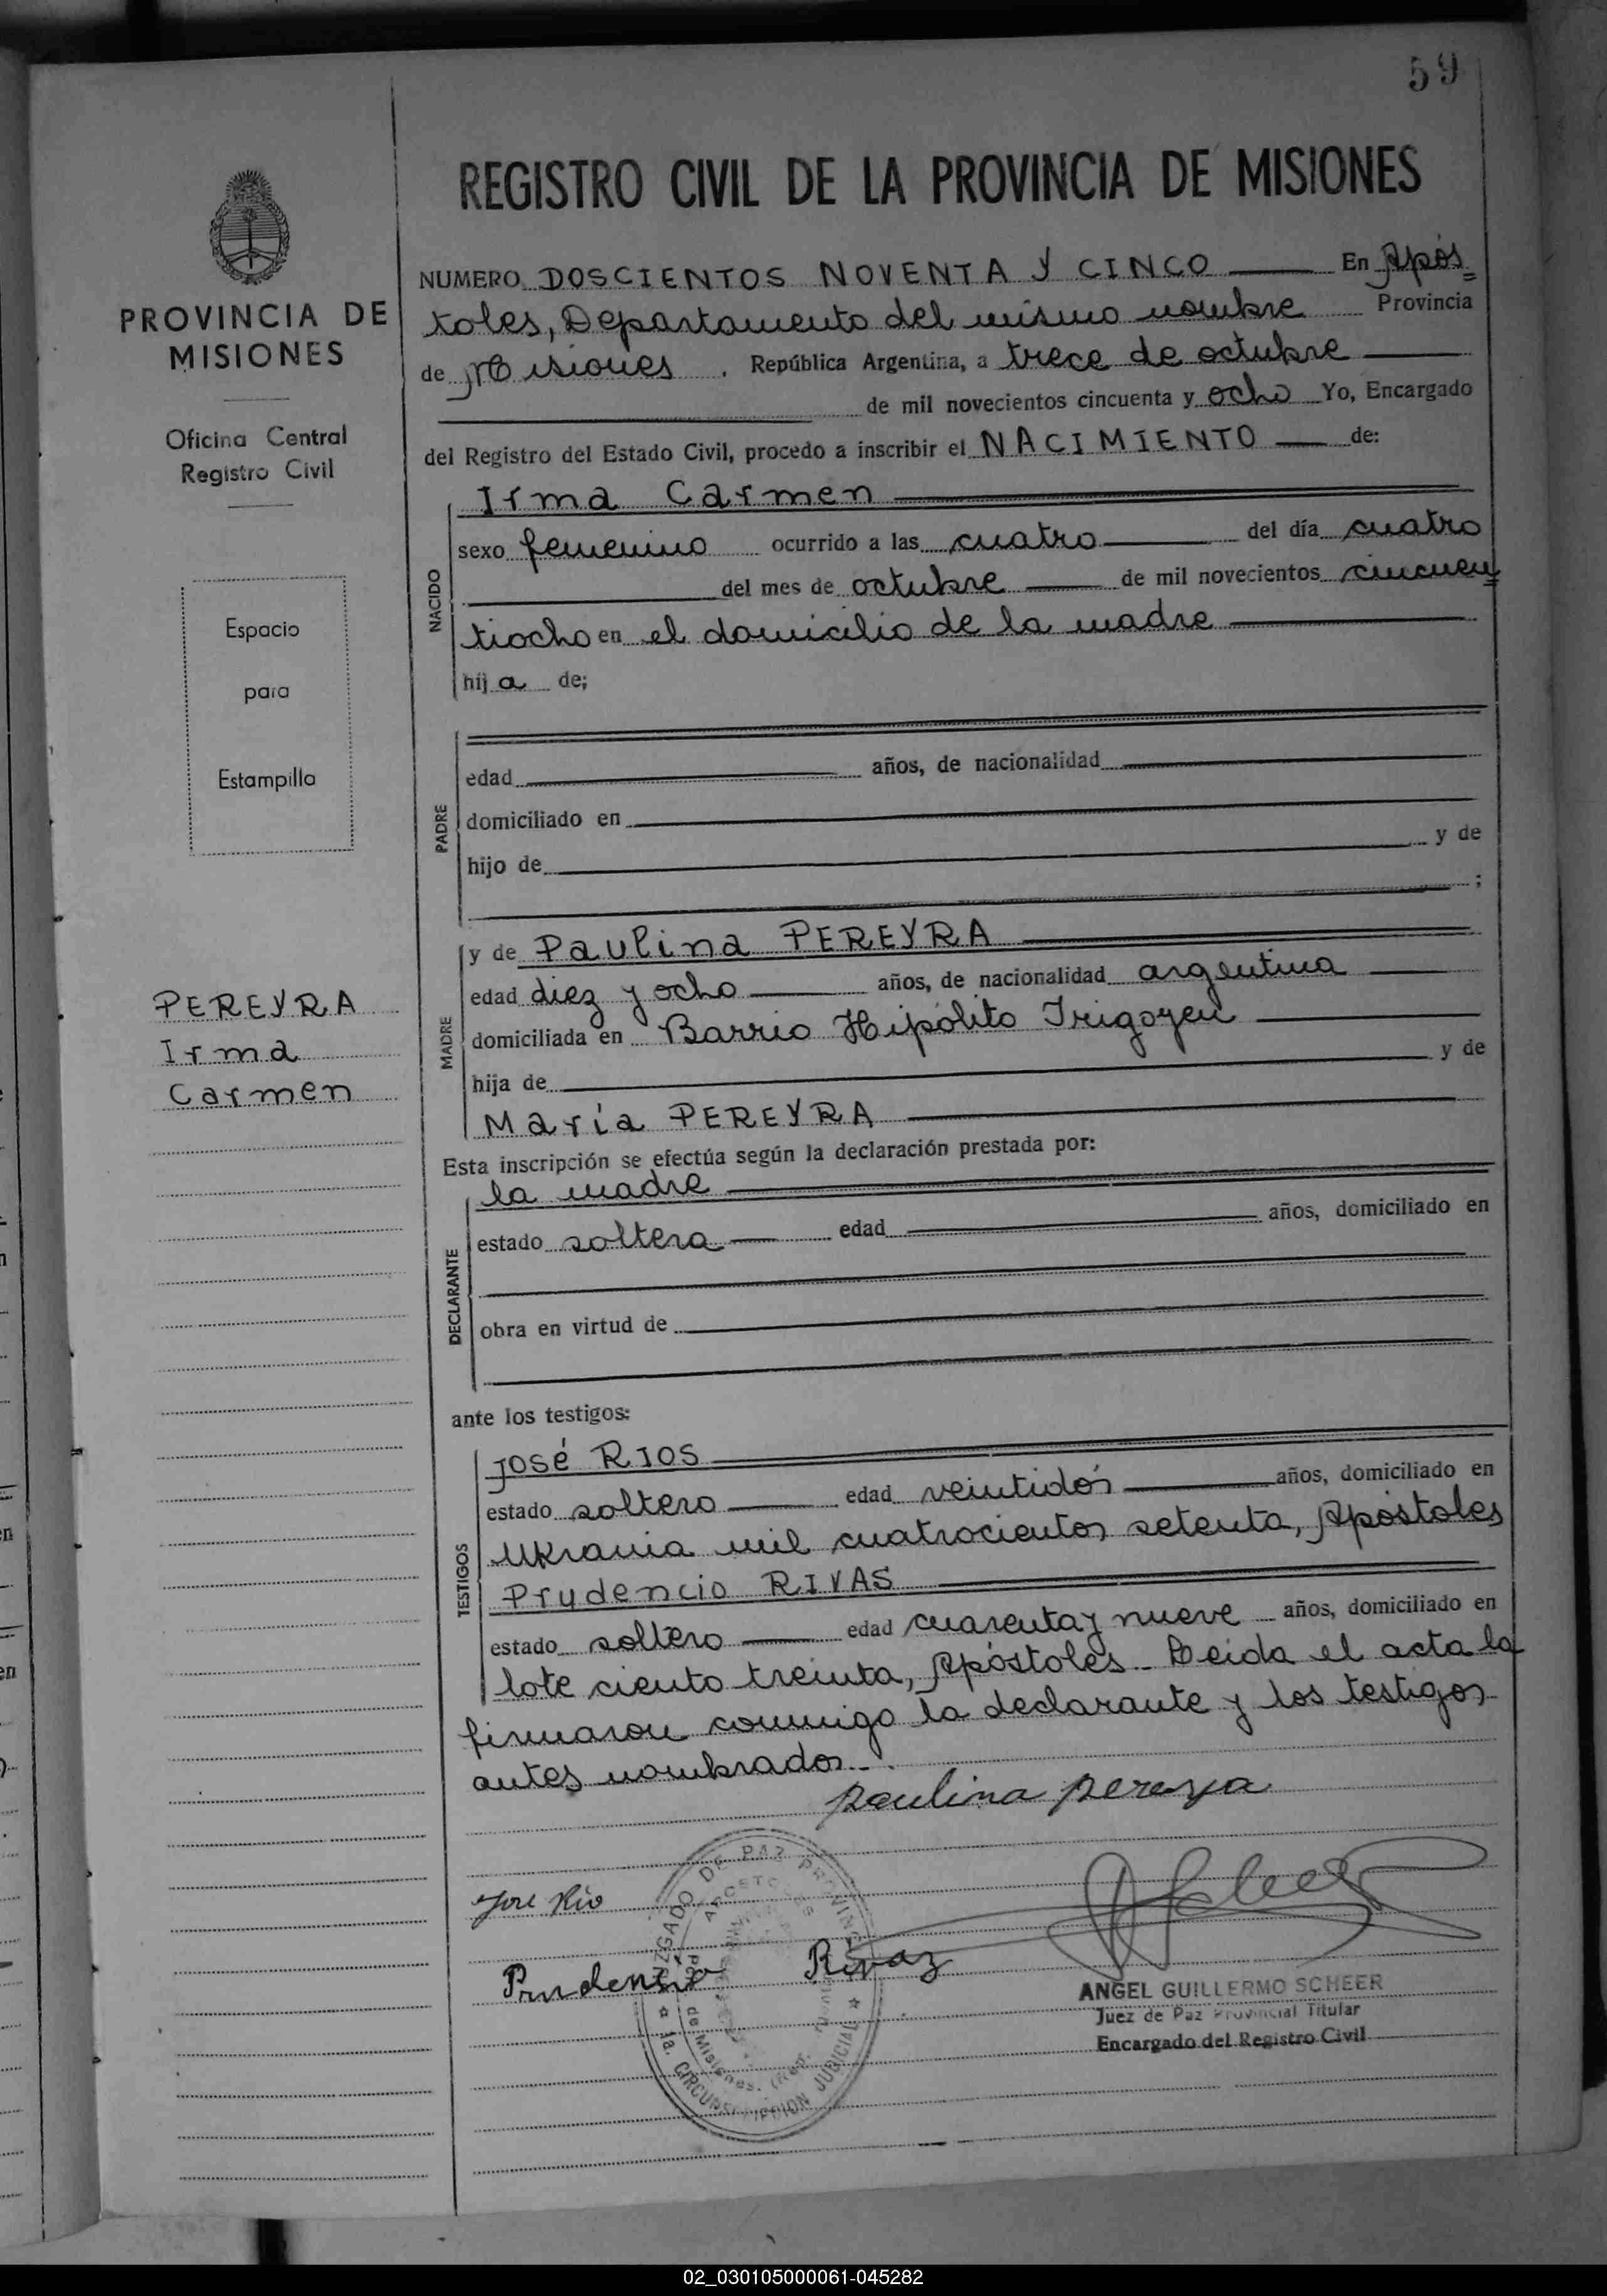 59
REGISTRO CIVIL DE LA PROVINCIA DE MISIONES
PROVINCIA DE
MISIONES
Oficina Central
Registro Civil
Espacio
para
Estampilla
PEREYRA
Irma
Carmen
NUMERO DOSCIENTOS NOVENTA Y CINCO En Após=
toles, Departamento del mismo nombre Provincia
de Misiones, República Argentina, a trece de octubre
de mil novecientos cincuenta y ocho Yo, Encargado
del Registro del Estado Civil, procedo a inscribir el NACIMIENTO de:
NACIDO
Irma Carmen
sexo femenino ocurrido a las cuatro del día cuatro
del mes de octubre de mil novecientos cincuen=
tiocho en el domicilio de la madre
hija de;
PADRE
edad años, de nacionalidad
domiciliado en
hijo de y de
;
MADRE
y de Paulina PEREYRA
edad diez y ocho años, de nacionalidad argentina
domiciliada en Barrio Hipólito Irigoyen
hija de y de
María PEREYRA
Esta inscripción se efectúa según la declaración prestada por:
DECLARANTE
la madre
estado soltera edad años, domiciliado en
obra en virtud de
ante los testigos:
TESTIGOS
José RIOS
estado soltero edad veintidós años, domiciliado en
Ukrania mil cuatrocientos setenta, Apóstoles
Prudencio RIVAS
estado soltero edad cuarenta y nueve años, domiciliado en
lote ciento treinta, Apóstoles. Leida el acta la
firmaron conmigo la declarante y los testigos
antes nombrados.
paulina pereyra
Jose Rio
Prudencio Rivaz
JUZGADO DE PAZ PROVINCIAL
APOSTOLES
de Misiones.
1a. CIRCUNSCRIPCION JUDICIAL
ANGEL GUILLERMO SCHEER
Juez de Paz Provincial Titular
Encargado del Registro Civil
02_030105000061-045282